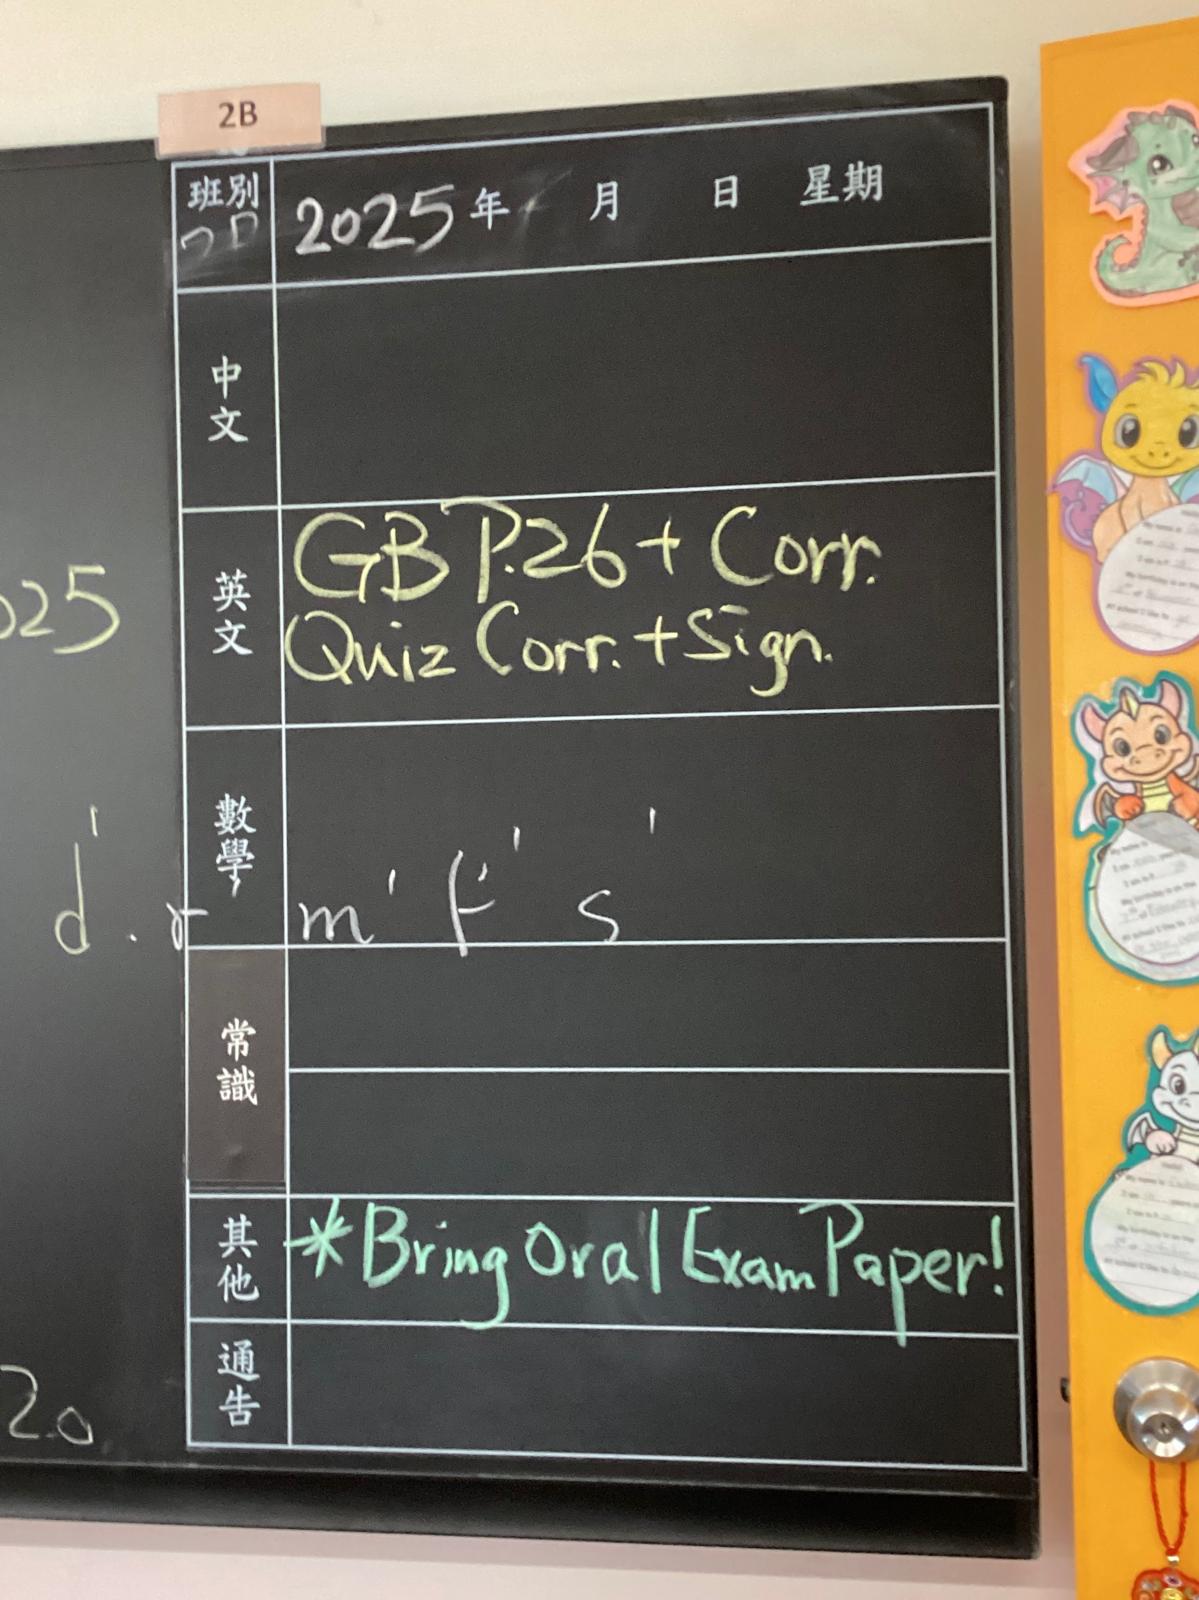 2B
班別 2025年 月 日 星期
中文
025
英文 GB P.26 + Corr.
Quiz Corr. + Sign.
數學
d' . r' m' f' s'
常識
其他 *Bring Oral Exam Paper!
通告
20